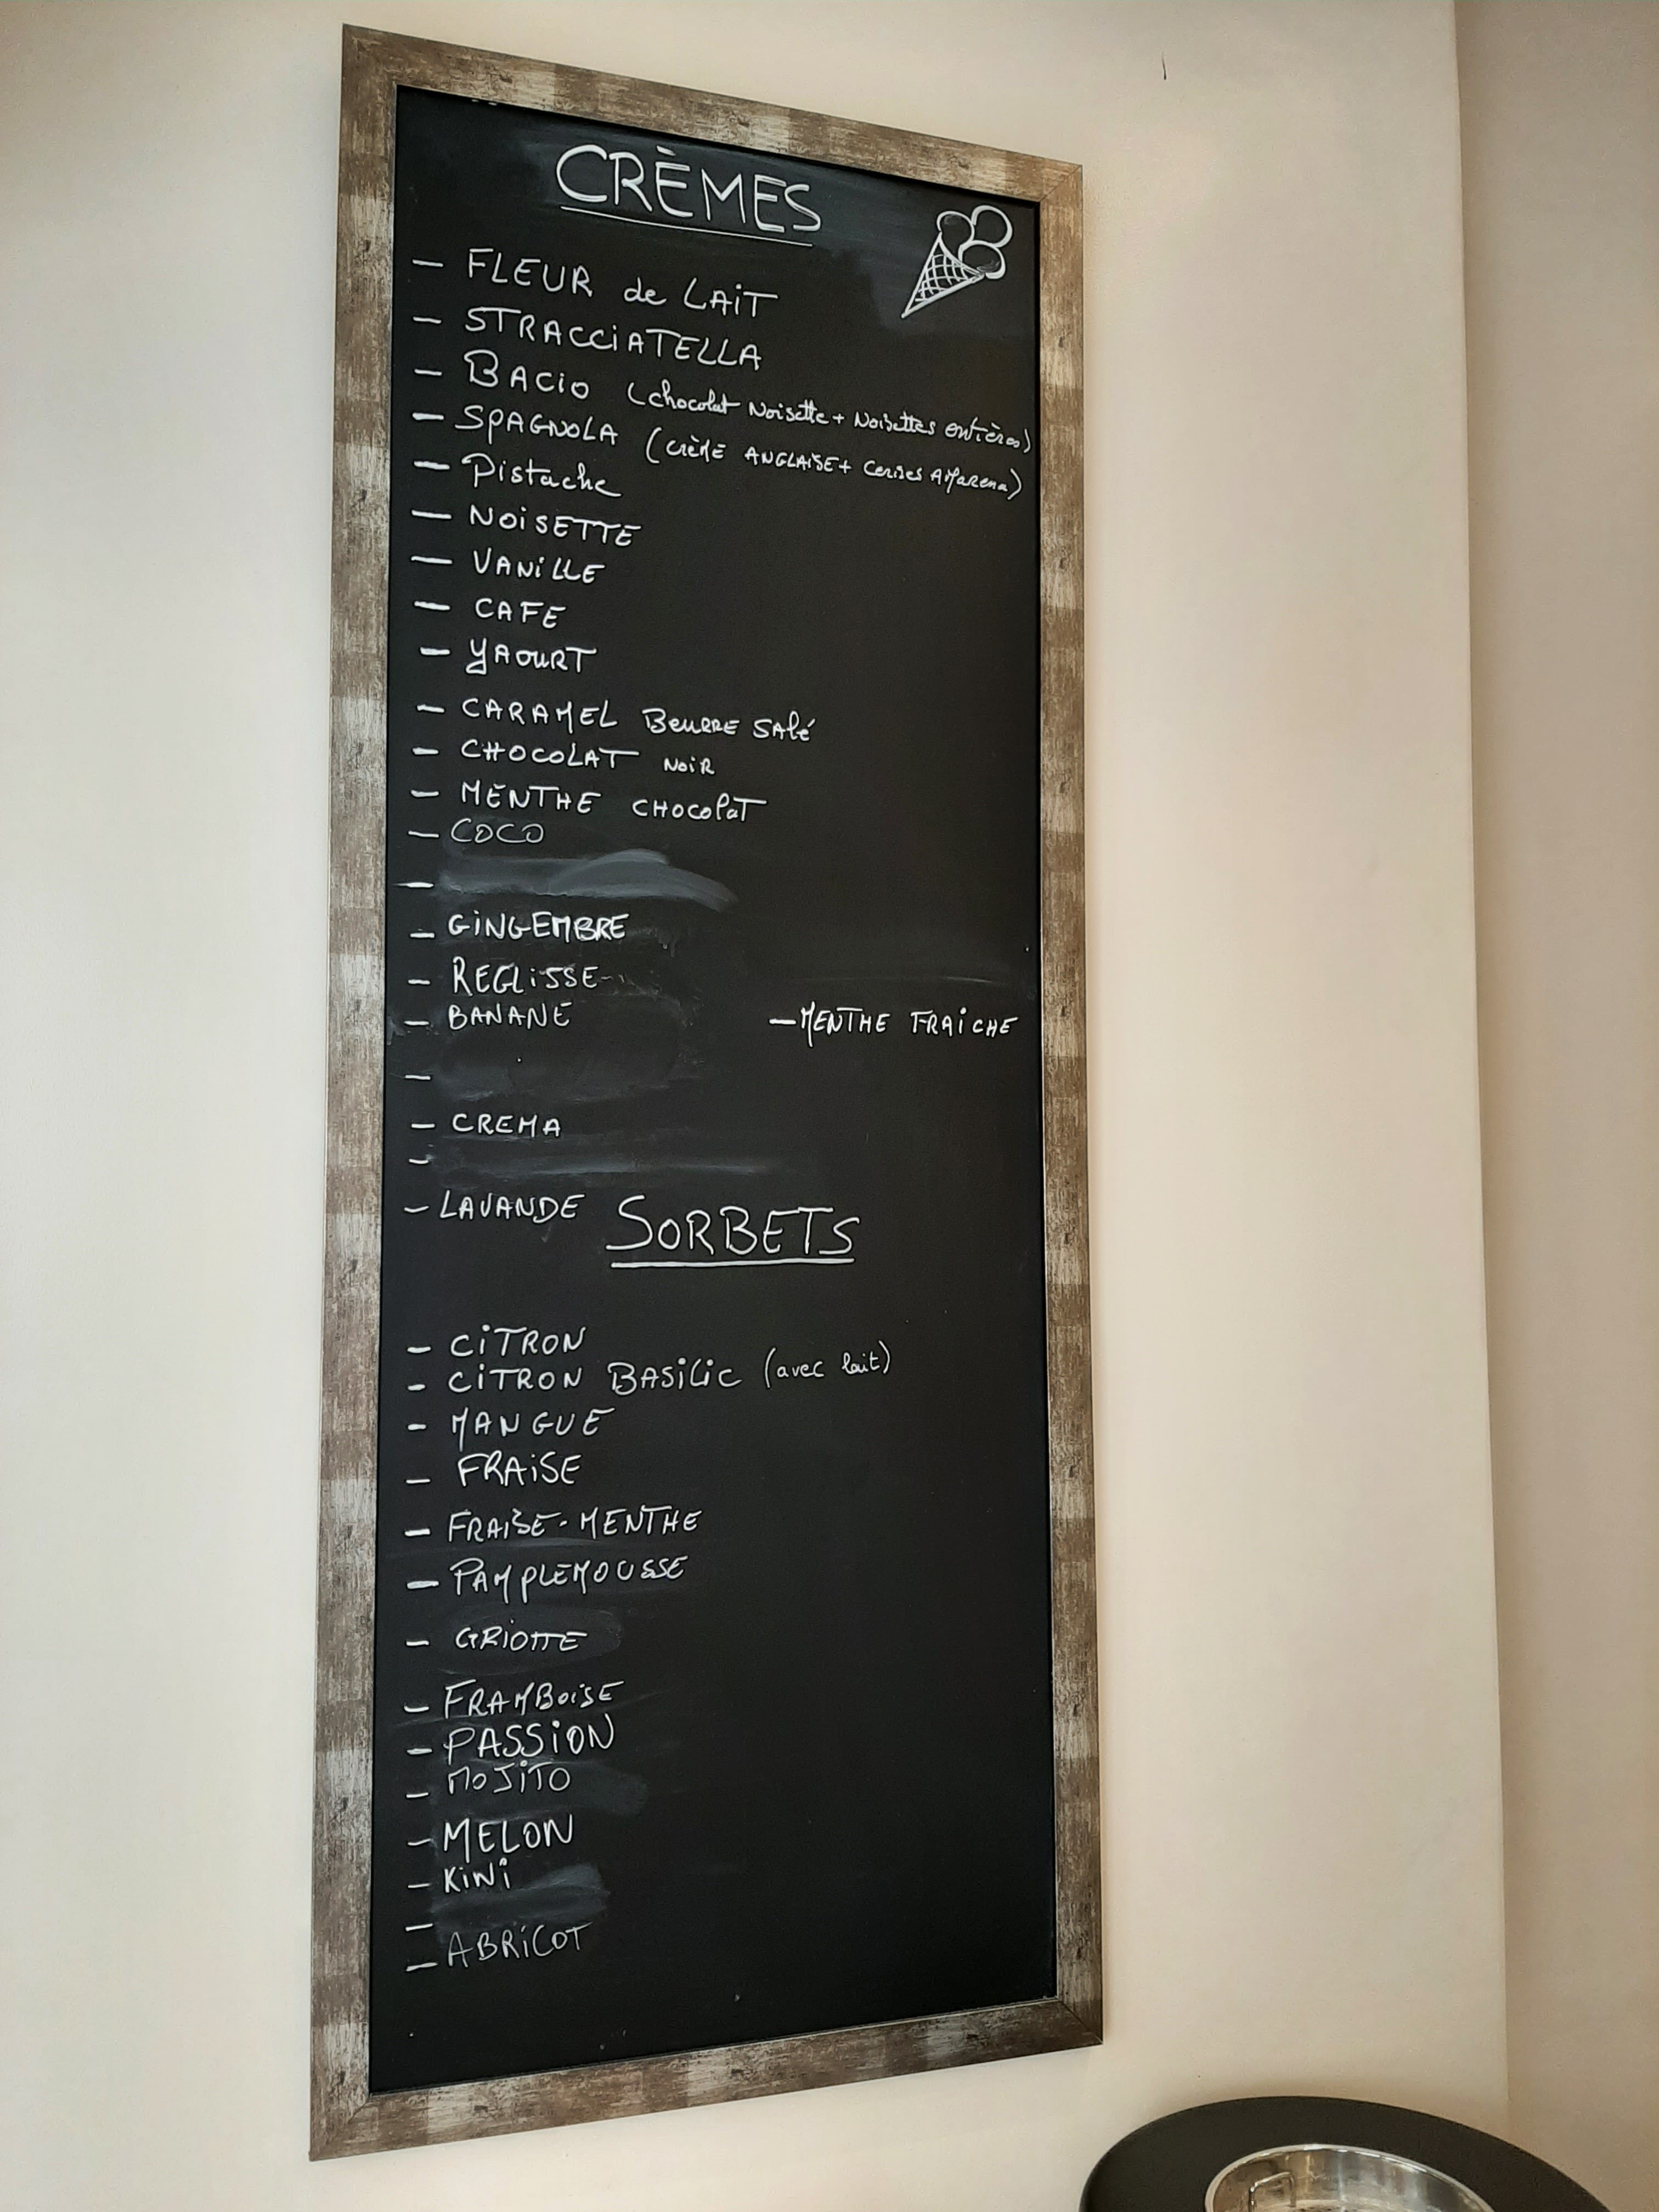 CRÈMES
— FLEUR de LAiT
— STRACCiATELLA
— BACiO (chocolat Noisette + Noisettes entières)
— SPAGNOLA (CRÈME ANGLAiSE + Cerises AMarena)
— Pistache
— NOiSETTE
— VANiLLE
— CAFE
— YAOURT
— CARAMEL BeuRRE SAlé
— CHOCOLAT NOiR
— MENTHE CHOColaT
— COCO
—
— GiNGEMBRE
— REGLiSSE
— BANANE — MENTHE FRAÎCHE
—
— CREMA
—
— LAVANDE
SORBETS
— CiTRON
- CiTRON BASiLiC (avec lait)
- MANGUE
— FRAiSE
— FRAiSE-MENTHE
— PAMPLEMOUSSE
— GRIOTTE
— FRAMBOiSE
— PASSiON
— MOJiTO
— MELON
— KiWi
—
— ABRiCOT